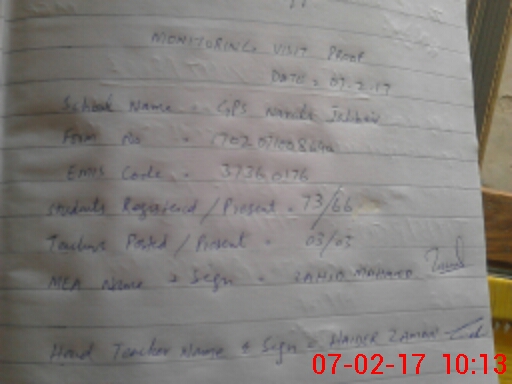 MONITORING VISIT PROOF
DATE = 07-2-17
School Name = GPS Narida
Form No =
EMIS Code = 37360176
Students Registered / Present = 73/66
Teachers Posted / Present = 03/03
MEA Name & Sign = ZAHID MAHMOOD
Head Teacher Name & Sign = HAIDER ZAMAN
07-02-17 10:13